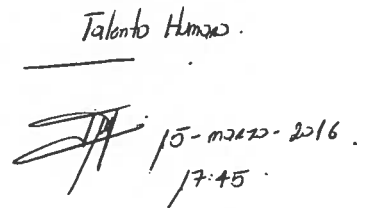 Talento Humano.
15-marzo-2016.
17:45.